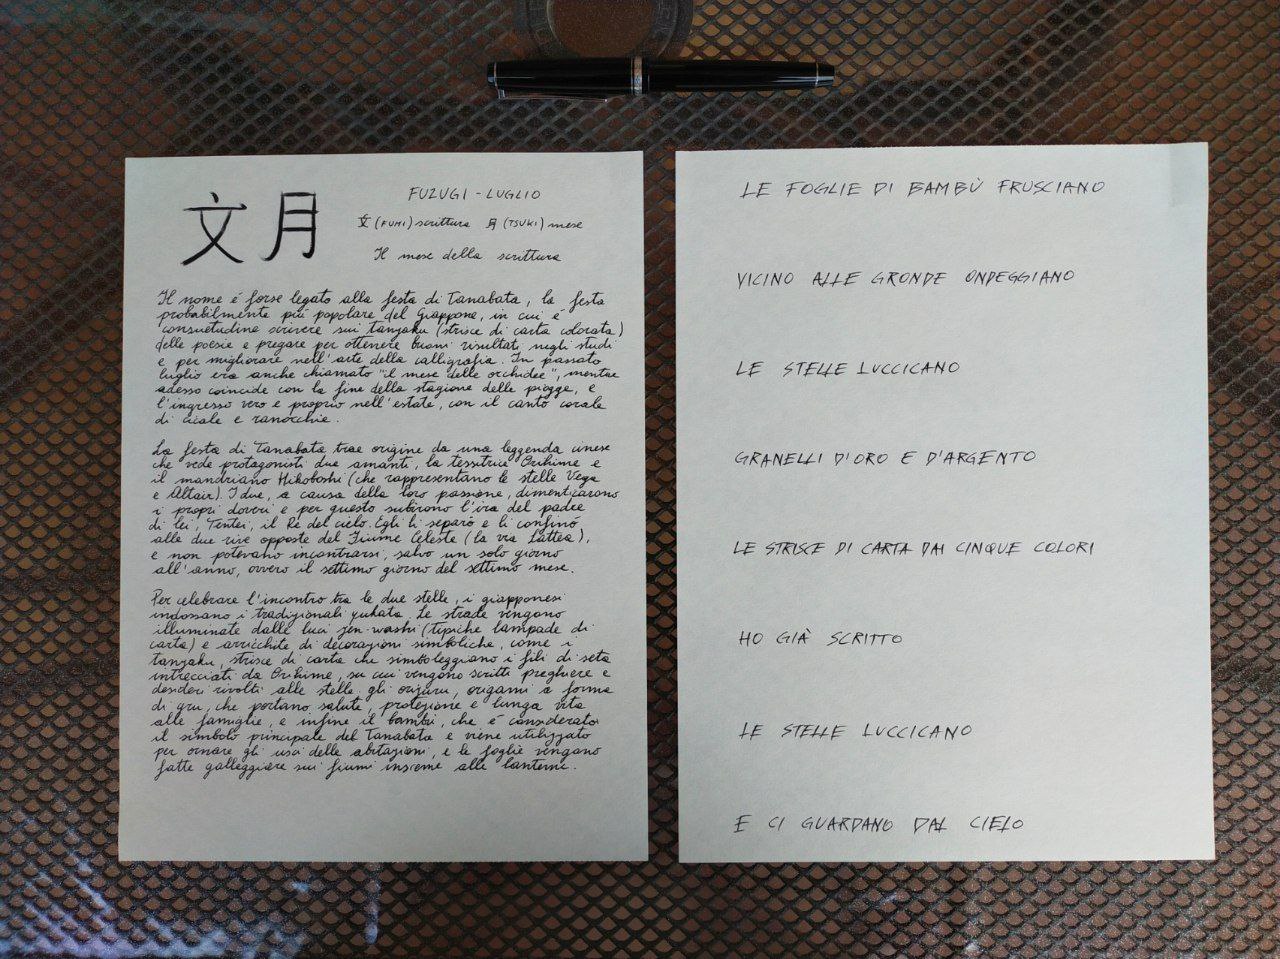 文月
FUZUGI - LUGLIO
文 (FUMI) scrittura 月 (TSUKI) mese
Il mese della scrittura
Il nome é forse legato alla festa di Tanabata, la festa
probabilmente piú popolare del Giappone, in cui é
consuetudine scrivere sui tanzaku (strisce di carta colorata)
delle poesie e pregare per ottenere buoni risultati negli studi
e per migliorare nell'arte della calligrafia. In passato
luglio era anche chiamato "il mese delle orchidee", mentre
adesso coincide con la fine della stagione delle piogge, e
l'ingresso vero e proprio nell'estate, con il canto corale
di cicale e ranocchie.
La festa di Tanabata trae origine da una leggenda cinese
che vede protagonisti due amanti, la tessitrice Orihime e
il mandriano Hikoboshi (che rappresentano le stelle Vega
e Altair). I due, a causa della loro passione, dimenticarono
i propri doveri e per questo subirono l'ira del padre
di lei, Tentei, il Re del cielo. Egli li separó e li confinó
alle due rive opposte del Fiume Celeste (la via Lattea),
e non potevano incontrarsi, salvo un solo giorno
all'anno, ovvero il settimo giorno del settimo mese.
Per celebrare l'incontro tra le due stelle, i giapponesi
indossano i tradizionali yukata. Le strade vengono
illuminate dalle luci zen-washi (tipiche lampade di
carta) e arricchite di decorazioni simboliche, come i
tanzaku, strisce di carta che simboleggiano i fili di seta
intrecciati da Orihime, su cui vengono scritti preghiere e
desideri rivolti alle stelle gli orizuru, origami a forma
di gru, che portano salute, protezione e lunga vita
alle famiglie, e infine il bambú, che é considerato
il simbolo principale del Tanabata e viene utilizzato
per ornare gli usci delle abitazioni, e le foglie vengono
fatte galleggiare sui fiumi insieme alle lanterne.
LE FOGLIE DI BAMBÙ FRUSCIANO
VICINO ALLE GRONDE ONDEGGIANO
LE STELLE LUCCICANO
GRANELLI D'ORO E D'ARGENTO
LE STRISCE DI CARTA DAI CINQUE COLORI
HO GIÀ SCRITTO
LE STELLE LUCCICANO
E CI GUARDANO DAL CIELO